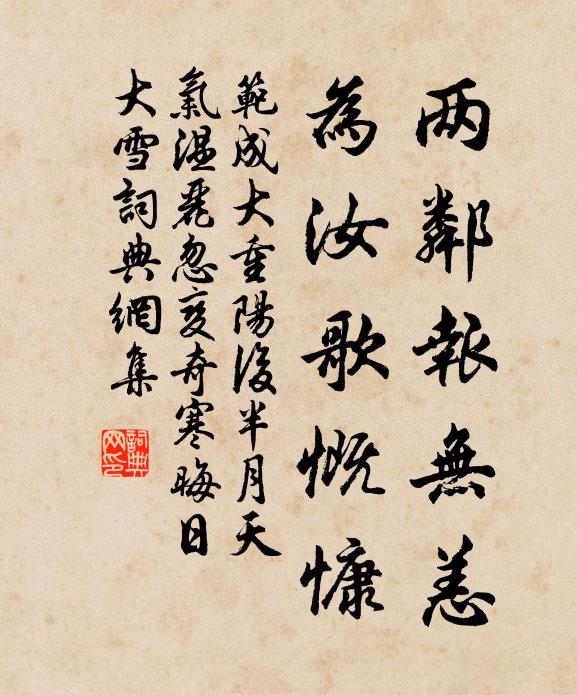 两鄰報無恙
為汝歌慨慷
範成大重陽後半月天
氣溫麗忽變奇寒晦日
大雪詞典網集
詞典
网印